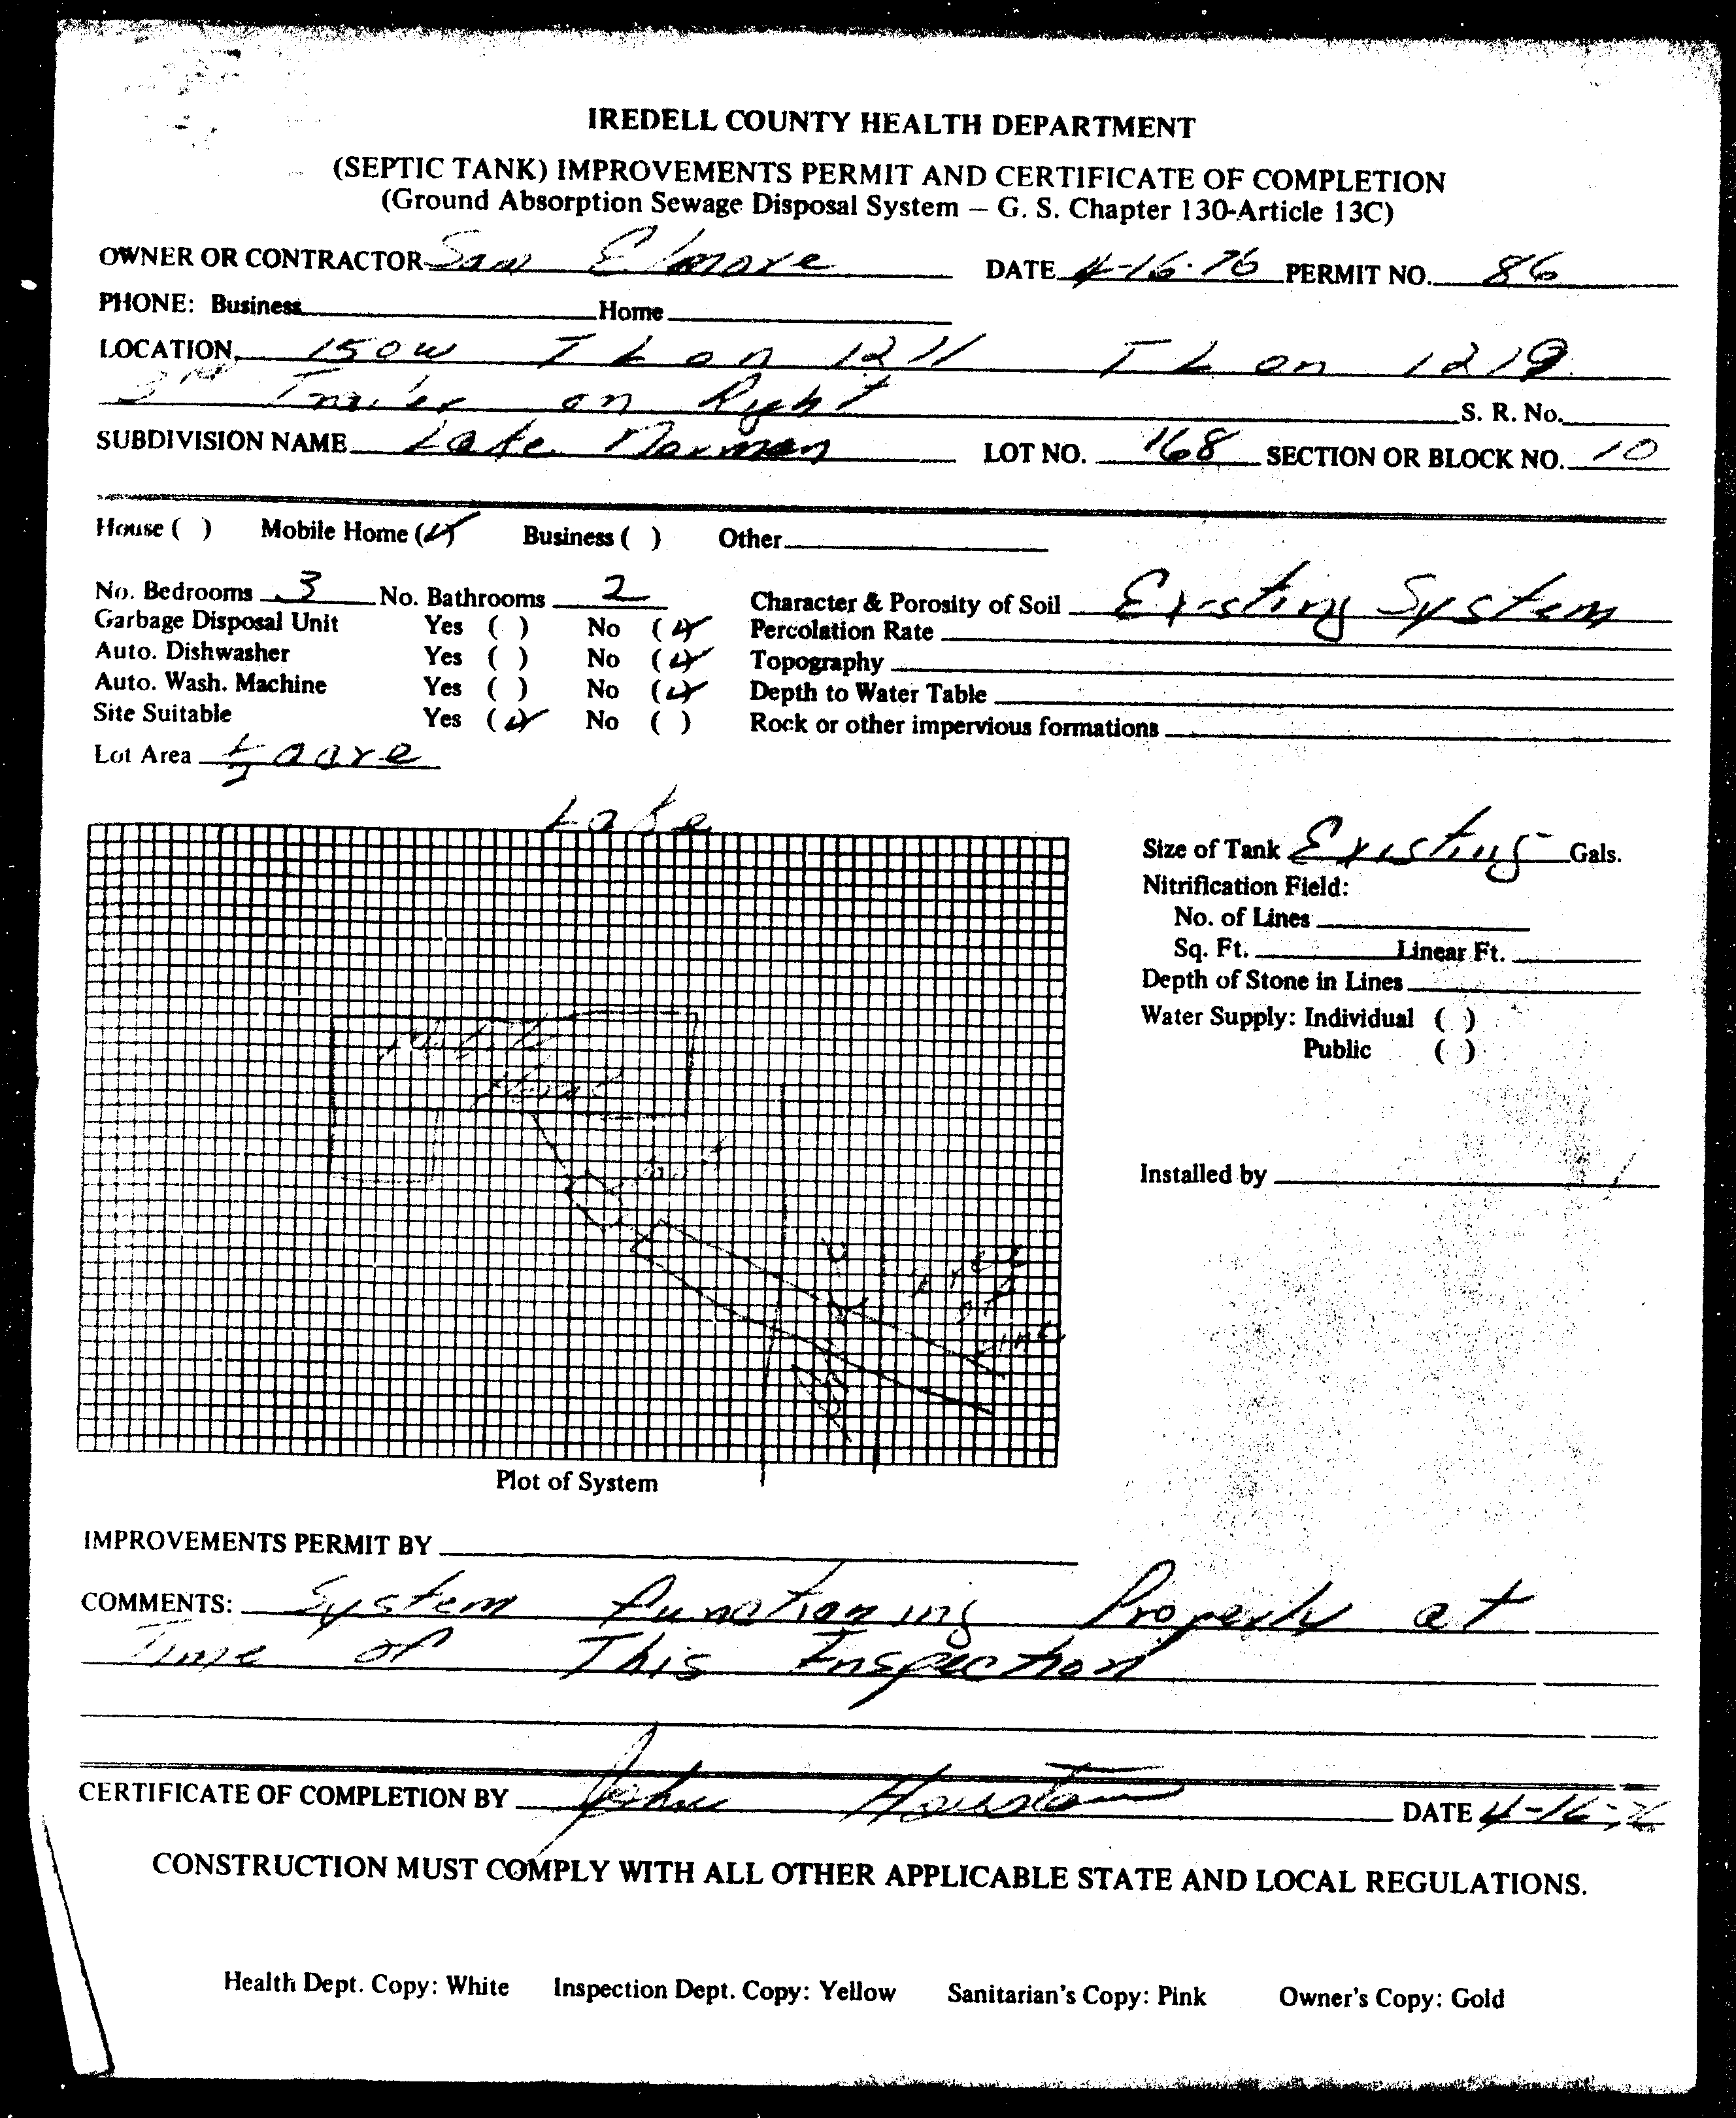 IREDELL COUNTY HEALTH DEPARTMENT
(SEPTIC TANK) IMPROVEMENTS PERMIT AND CERTIFICATE OF COMPLETION
(Ground Absorption Sewage Disposal System – G. S. Chapter 130-Article 13C)
OWNER OR CONTRACTOR Sam Elmore DATE 4-16-76 PERMIT NO. 86
PHONE: Business Home
LOCATION 150W T L on 1211 T L on 1219
2nd Trailer on Right S. R. No.
SUBDIVISION NAME Lake Norman LOT NO. 168 SECTION OR BLOCK NO. 10
House ( ) Mobile Home (✓) Business ( ) Other
No. Bedrooms 3 No. Bathrooms 2 Character & Porosity of Soil Existing System
Garbage Disposal Unit Yes ( ) No (✓) Percolation Rate
Auto. Dishwasher Yes ( ) No (✓) Topography
Auto. Wash. Machine Yes ( ) No (✓) Depth to Water Table
Site Suitable Yes (✓) No ( ) Rock or other impervious formations
Lot Area acre
Lake
Size of Tank Existing Gals.
Nitrification Field:
No. of Lines
Sq. Ft. Linear Ft.
Depth of Stone in Lines
Water Supply: Individual ( )
Public ( )
Mobile
Home
Line
Installed by
Plot of System
IMPROVEMENTS PERMIT BY
COMMENTS: System functioning Properly at
Time of This Inspection
CERTIFICATE OF COMPLETION BY John Houston DATE 4-16-76
CONSTRUCTION MUST COMPLY WITH ALL OTHER APPLICABLE STATE AND LOCAL REGULATIONS.
Health Dept. Copy: White Inspection Dept. Copy: Yellow Sanitarian's Copy: Pink Owner's Copy: Gold